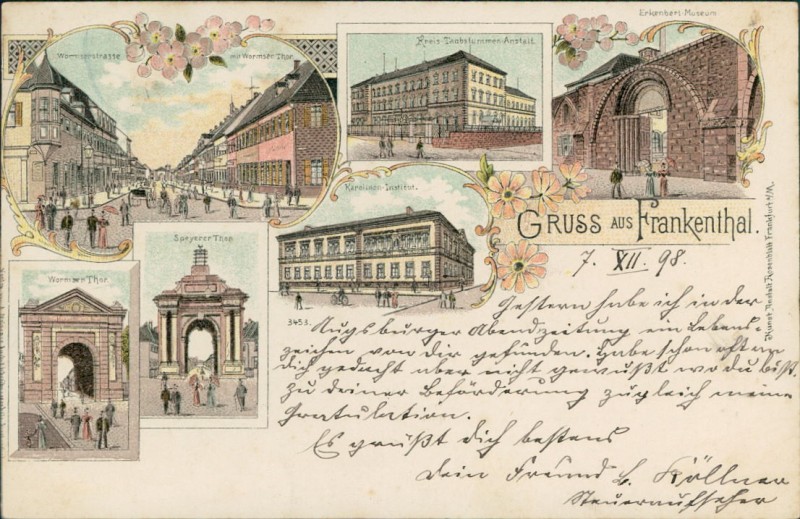 Wormserstrasse
mit Wormser-Thor
Kreis-Taubstummen-Anstalt.
Erkenbert-Museum
Karolinen-Institut.
Speyerer Thor
Wormser Thor
3453.
GRUSS AUS Frankenthal.
7. XII. 98.
Gestern habe ich in der
Augsburger Abendzeitung ein Lebens-
zeichen von dir gefunden. Habe schon öfter an
dich gedacht aber nicht gewußt wo du bist.
Zu deiner Beförderung zugleich meine
Gratulation.
Es grüßt dich bestens
dein Freund G. Köllner
Steueraufseher
Kunst-Anstalt Rosenblatt Frankfurt a/M.